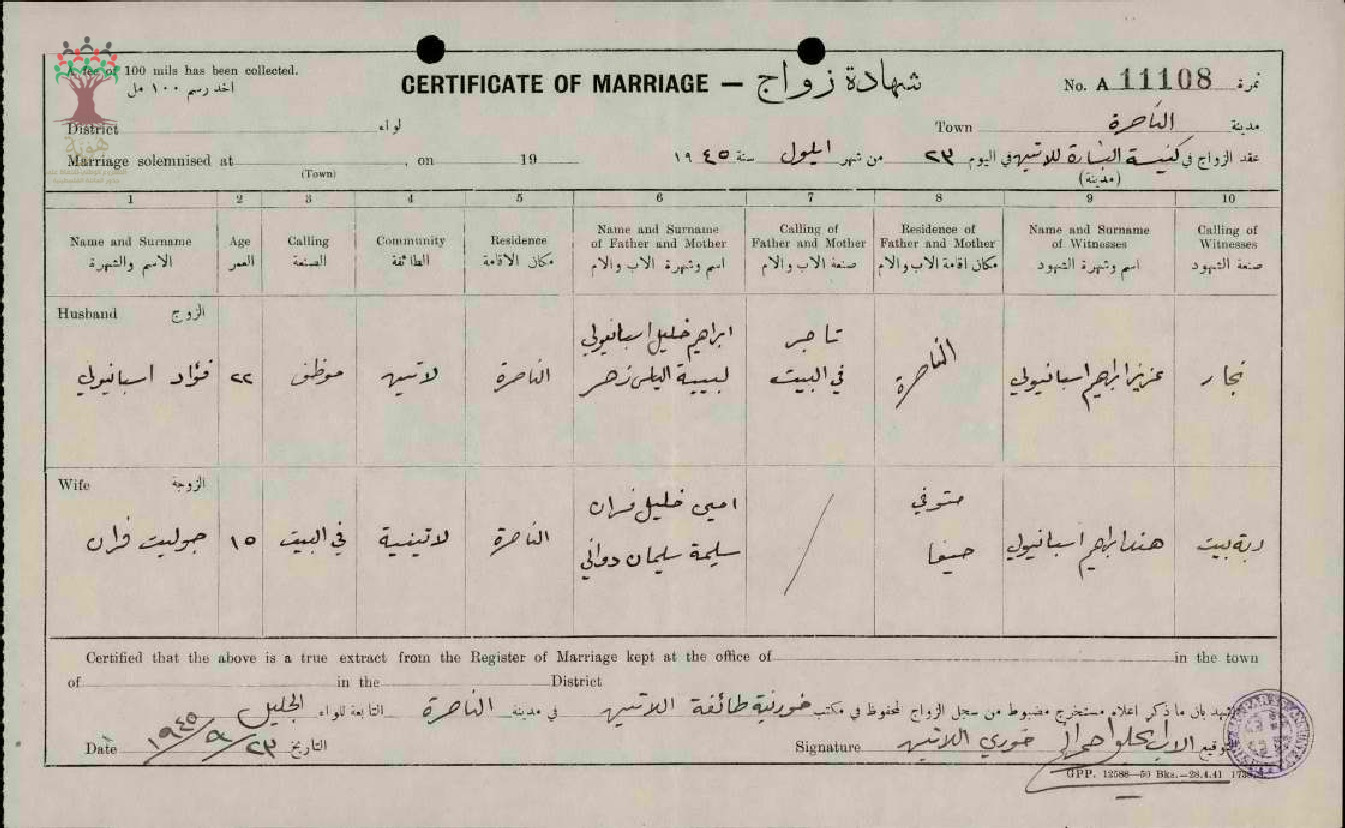 A fee of 100 mils has been collected.
اخذ رسم ١٠٠ مل
CERTIFICATE OF MARRIAGE — شهادة زواج
No. A 11108 نمرة
District لواء
Town الناصرة مدينة
Marriage solemnised at , on 19
(Town)
عقد الزواج في كنيسة البشارة للاتين في اليوم ٢٣ من شهر ايلول سنة ١٩٤٥
(مدينة)
هوية
1 2 3 4 5 6 7 8 9 10
Name and Surname
الاسم والشهرة
Age
العمر
Calling
الصنعة
Community
الطائفة
Residence
مكان الاقامة
Name and Surname
of Father and Mother
اسم وشهرة الاب والام
Calling of
Father and Mother
صنعة الاب والام
Residence of
Father and Mother
مكان اقامة الاب والام
Name and Surname
of Witnesses
اسم وشهرة الشهود
Calling of
Witnesses
صنعة الشهود
Husband الزوج
فؤاد اسبانيولي
٢٢
موظف
لاتين
الناصرة
ابراهيم خليل اسبانيولي
لبيبة الياس زهر
تاجر
في البيت
الناصرة
عزيز ابراهيم اسبانيولي
نجار
Wife الزوجة
جوليت فران
١٥
في البيت
لاتينية
الناصرة
امين خليل فران
سليمة سليمان دواني
متوفي
حيفا
هند ابراهيم اسبانيولي
ربة بيت
Certified that the above is a true extract from the Register of Marriage kept at the office of in the town
of in the District
بان ما ذكر اعلاه مستخرج مضبوط من سجل الزواج المحفوظ في مكتب خورنية طائفة اللاتين في مدينة الناصرة التابعة للواء الجليل
Date ٢٣/٩/١٩٤٥ التاريخ
Signature خوري اللاتين الاب توقيع
GPP. 12588—50 Bks.—28.4.41